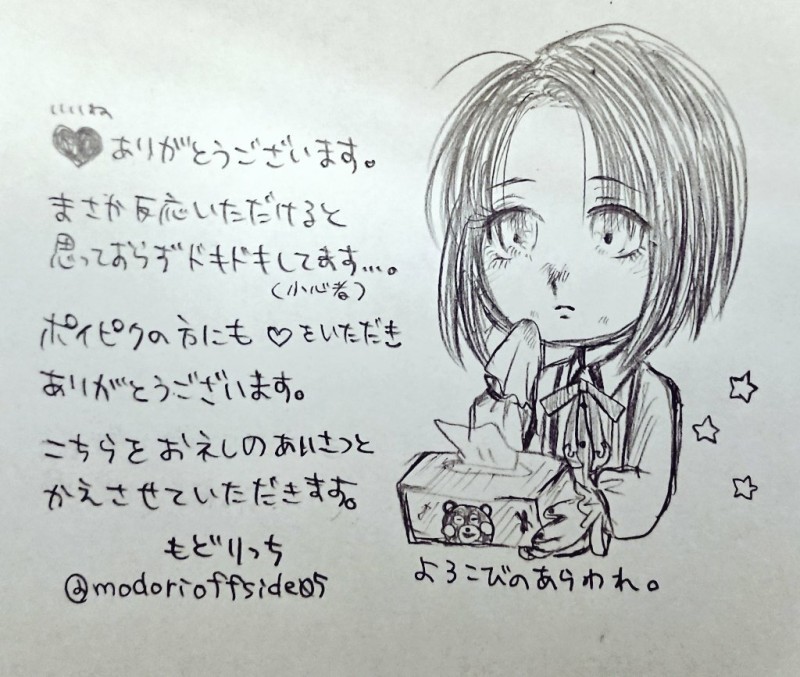 いいね
♥ありがとうございます。
まさか反応いただけると
思っておらずドキドキしてます…。
(小心者)
ポイピクの方にも♡をいただき
ありがとうございます。
こちらをお礼しのあいさつと
かえさせていただきます。
もどりっち
@modorioffside05
よろこびのあらわれ。